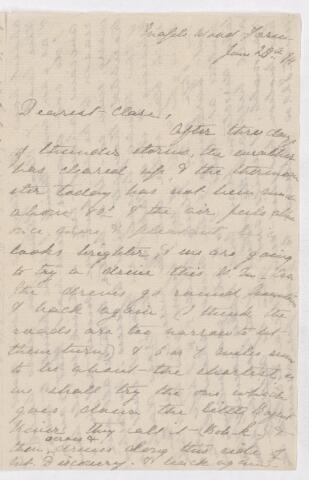 Maple Wood Farm
June 28th
Dearest Clare,
After three days
of thunder storms, the weather
has cleared up & the thermom
eter today has not been much
above 82° & the air feels
nice &
looks brighter, & we are going
to try a drive this
the drives go round
& back again, I think the
roads are too narrow to let
them turn, & 6 or 7 miles
to be about the shortest,
we shall try the one which
goes down the little
River they call it
then across & along this side
& back again